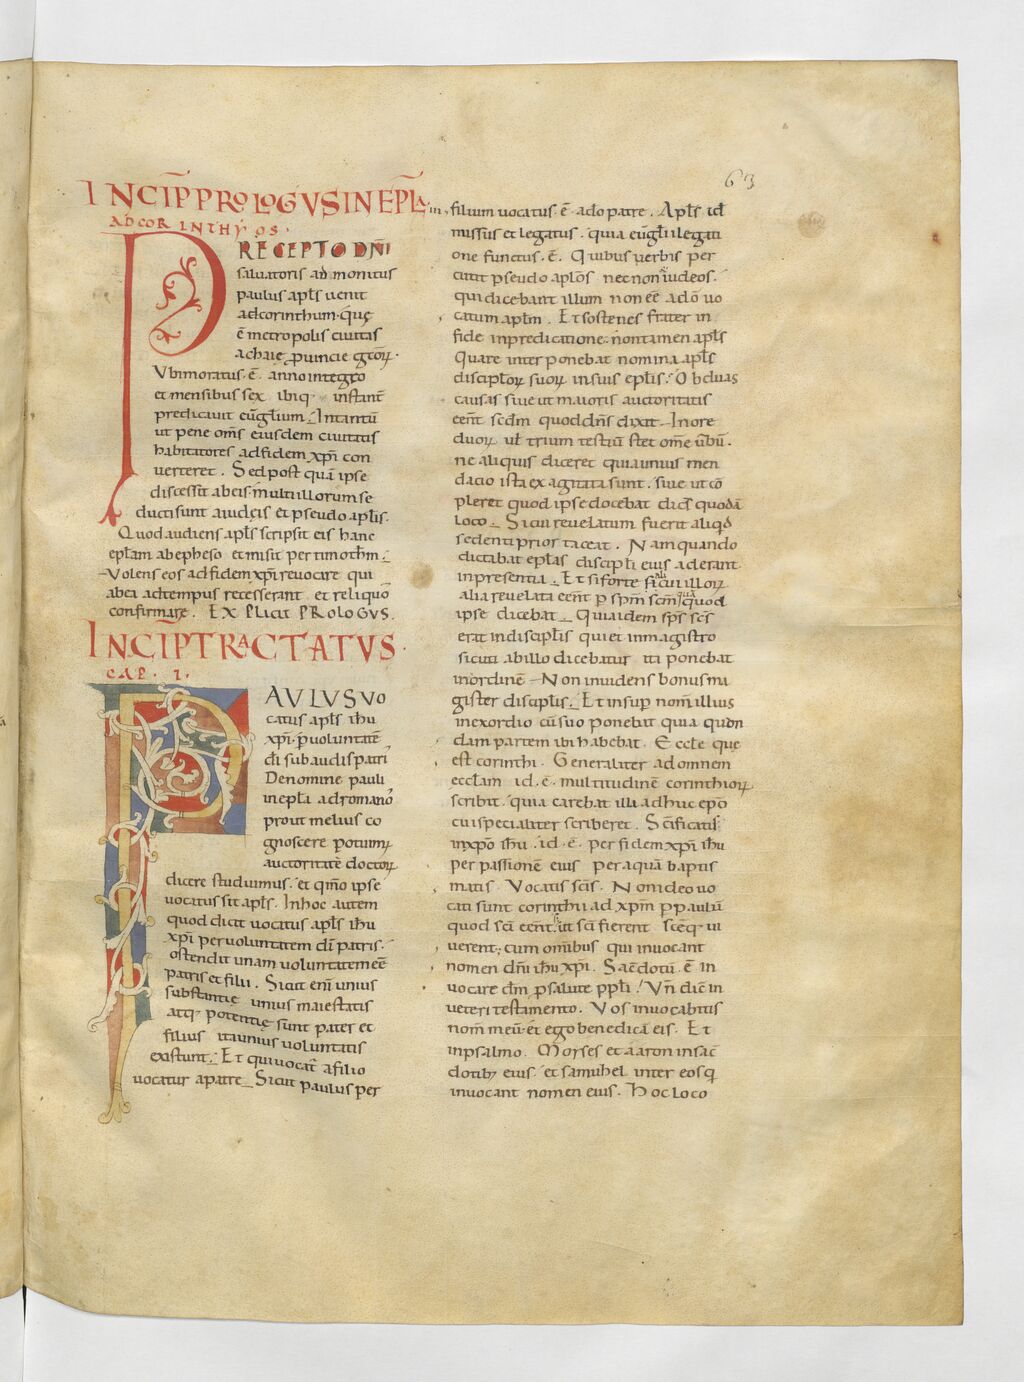 63
INCIP̄ PROLOGVS IN EPL̄A
AD CORINTHYOS.
PRECEPTO DN̄I
saluatoris admonitus
paulus apl̄s uenit
ad corinthum. quę
ē metropolis ciuitas
achaie ꝓuincie gꝛecoꝝ.
Vbi moratus. ē. anno integro
et mensibus sex ibiq; instanṫ
predicauit euḡlium. In tantū
ut pene om̄s eiusdem ciuitatis
habitatores ad fidem xp̄i con
uerteret. Sed post quā ipse
discessit ab eis. multi illorum se
ducti sunt a iudeis et pseudo apl̄is.
Quod audiens apl̄s scripsit eis hanc
epl̄am ab epheso et misit per timoth̄m.
Volens eos ad fidem xp̄i reuocare qui
ab ea ad tempus recesserant et reliquo
confirmare. EXPLICIT PROLOGVS.
INCIP̄ TRACTATVS.
CAP. I.
PAVLVS VO
catus apl̄s ih̄u
xp̄i. ꝑ uoluntatē
dī subaudis patri
De nomine pauli
in epl̄a ad romanos
prout melius co
gnoscere potuimꝰ
auctoritatē doctoꝝ
dicere studuimus. et qm̄o ipse
uocatus sit apl̄s. In hoc autem
quod dicit uocatus apl̄s ih̄u
xp̄i per uoluntatem dī patris.
ostendit unam uoluntatem eē
patris et filii. Sicut eni unius
substantię unius maiestatis
atq; potentię sunt pater et
filius ita unius uoluntatis
existunt. Et qui uocat̄ a filio
uocatur a patre. Sicut paulus per
filium uocatus. ē. a do patre. Apl̄s id̄
missus et legatus. quia euḡlii legati
one functus. ē. Quibus uerbis per
cutit pseudo apl̄os necnon iudeos.
qui dicebant illum non eē a dō uo
catum apl̄m. Et sostenes frater in
fide in predicatione. non tamen apl̄s
Quare interponebat nomina apl̄s
discipl̄oꝝ suoꝝ in suis epl̄is? Ob duas
causas siue ut maioris auctoritatis
eēnt scd̄m quod dn̄s dixit. In ore
duoꝝ ul̄ trium testiū stet om̄e uḃū.
ne aliquis diceret quia unius men
dacio ista exagitata sunt. siue ut cō
pleret quod ipse docebat dicēs quodā
loco. Si cui reuelatum fuerit aliqd̄
sedenti prior taceat. Nam quando
dictabat epl̄as discipl̄i eius aderant
in presentia. Et si forte sicui illoꝝ
alia reuelata eēnt ꝑ sp̄m sc̄m quod
ipse dicebat. Quia idem sp̄s sc̄s
erat in discipl̄is qui et in magistro
sicuti ab illo dicebatur ita ponebat
in ordinē. Non inuidens bonus ma
gister discipl̄is. Et insuꝑ nom̄ illius
in exordio cū suo ponebat quia quon
dam partem ibi habebat. Eccl̄e quę
est corinthi. Generaliter ad omnem
eccl̄am id. ē. multitudinē corinthioꝝ
scribit quia carebat illa adhuc ep̄o
cui specialiter scriberet. Sc̄ificatis
in xp̄o ih̄u. id. ē. per fidem xp̄i ih̄u
per passionē eius per aquā baptis
matis. Vocatis sc̄is. Non ideo uo
cati sunt corinthii ad xp̄m ꝑ paulū
quod sc̄i eēnt. s; ut sc̄i fierent sc̄eq; ui
uerent; cum omībus qui inuocant
nomen dn̄i ih̄u xp̄i. Sacdotū. ē in
uocare dm̄ ꝓ salute ppl̄i. Vn̄ dic̄ in
ueteri testamento. Vos inuocabitis
nom̄ meū. et ego benedicā eis. Et
in psalmo. Moyses et aaron in sac̄
dotibꝰ eius et samuhel inter eos q
inuocant nomen eius. Hoc loco